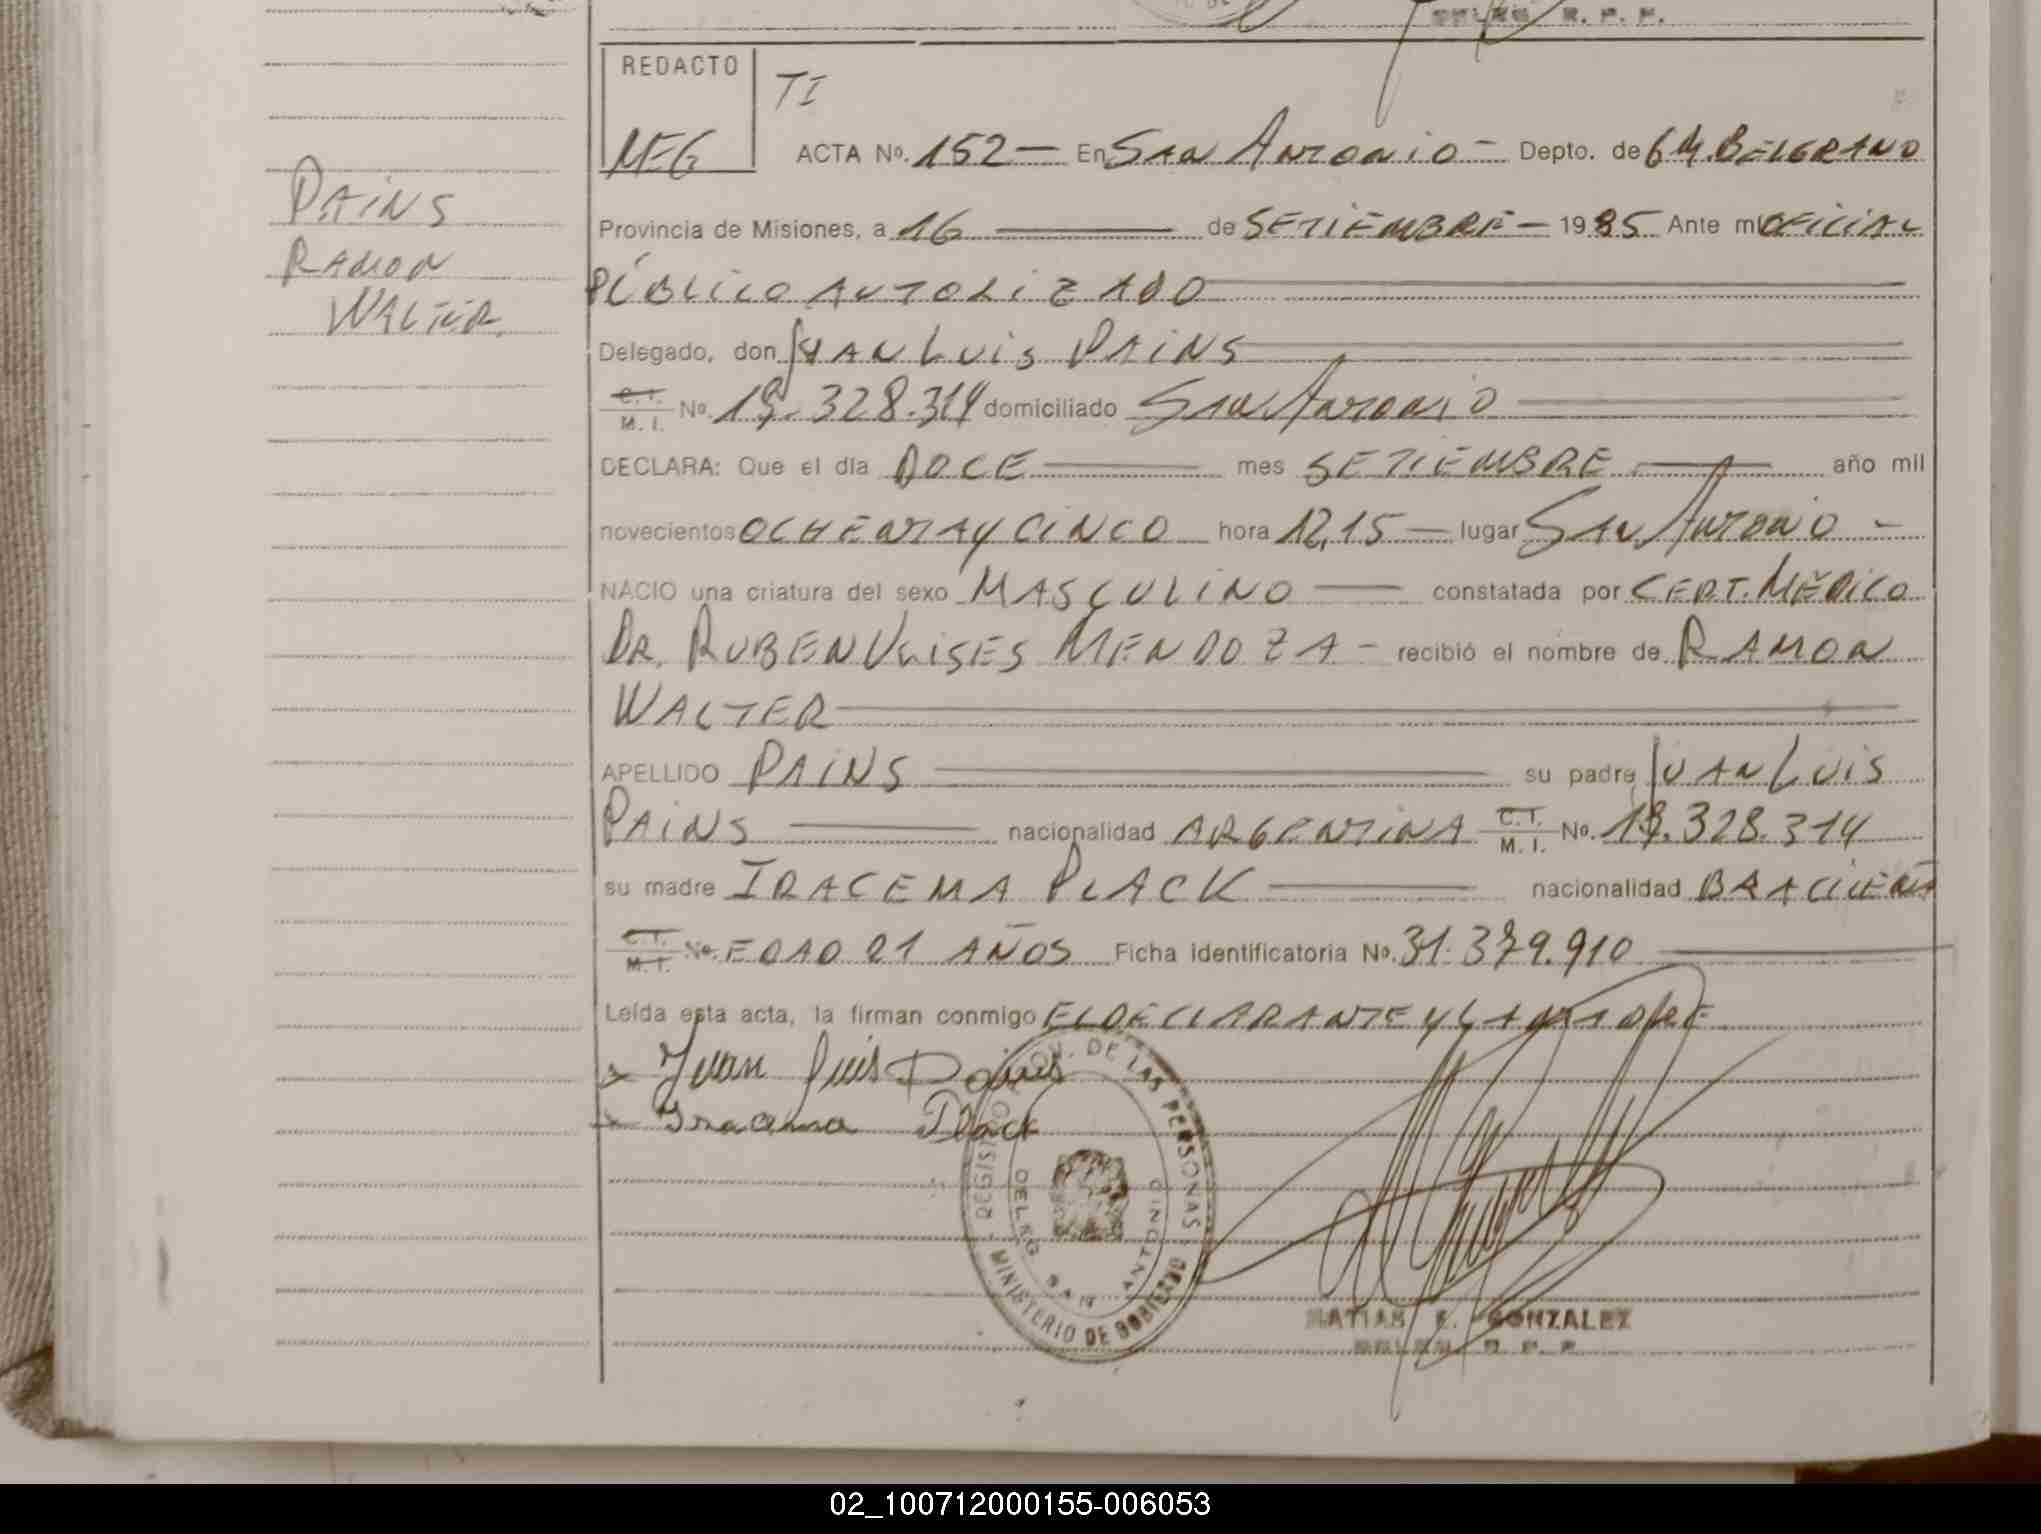 DELEG. R. P. P.
REDACTO
TI
MEG
ACTA Nº. 152 — En SAN ANTONIO - Depto. de G M. BELGRANO
PAINS
RAMON
WALTER
Provincia de Misiones, a 16 — de SETIEMBRE — 1985 Ante mi OFICIAL
PÚBLICO AUTORIZADO
Delegado, don JUAN LUIS PAINS
C. I.
M. I. Nº. 18.328.314 domiciliado SAN ANTONIO
DECLARA: Que el día DOCE — mes SETIEMBRE — año mil
novecientos OCHENTA Y CINCO hora 12,15 — lugar SAN ANTONIO -
NACIO una criatura del sexo MASCULINO — constatada por CERT. MÉDICO
DR. RUBEN ULISES MENDOZA - recibió el nombre de RAMON
WALTER
APELLIDO PAINS — su padre JUAN LUIS
PAINS — nacionalidad ARGENTINA C. I.
M. I. Nº. 18.328.314
su madre IRACEMA PLACK — nacionalidad BRACILEÑA
C. I.
M. I. Nº. EDAD 21 AÑOS Ficha identificatoria Nº. 31.379.910
Leída esta acta, la firman conmigo EL DECLARANTE Y LA MADRE
Juan Luis Pains
Iracema Plack
REGISTRO PROV. DE LAS PERSONAS
DELEG. SAN ANTONIO
MINISTERIO DE GOBIERNO
MATIAS E. GONZALEZ
DELEG. R. P. P.
02_100712000155-006053